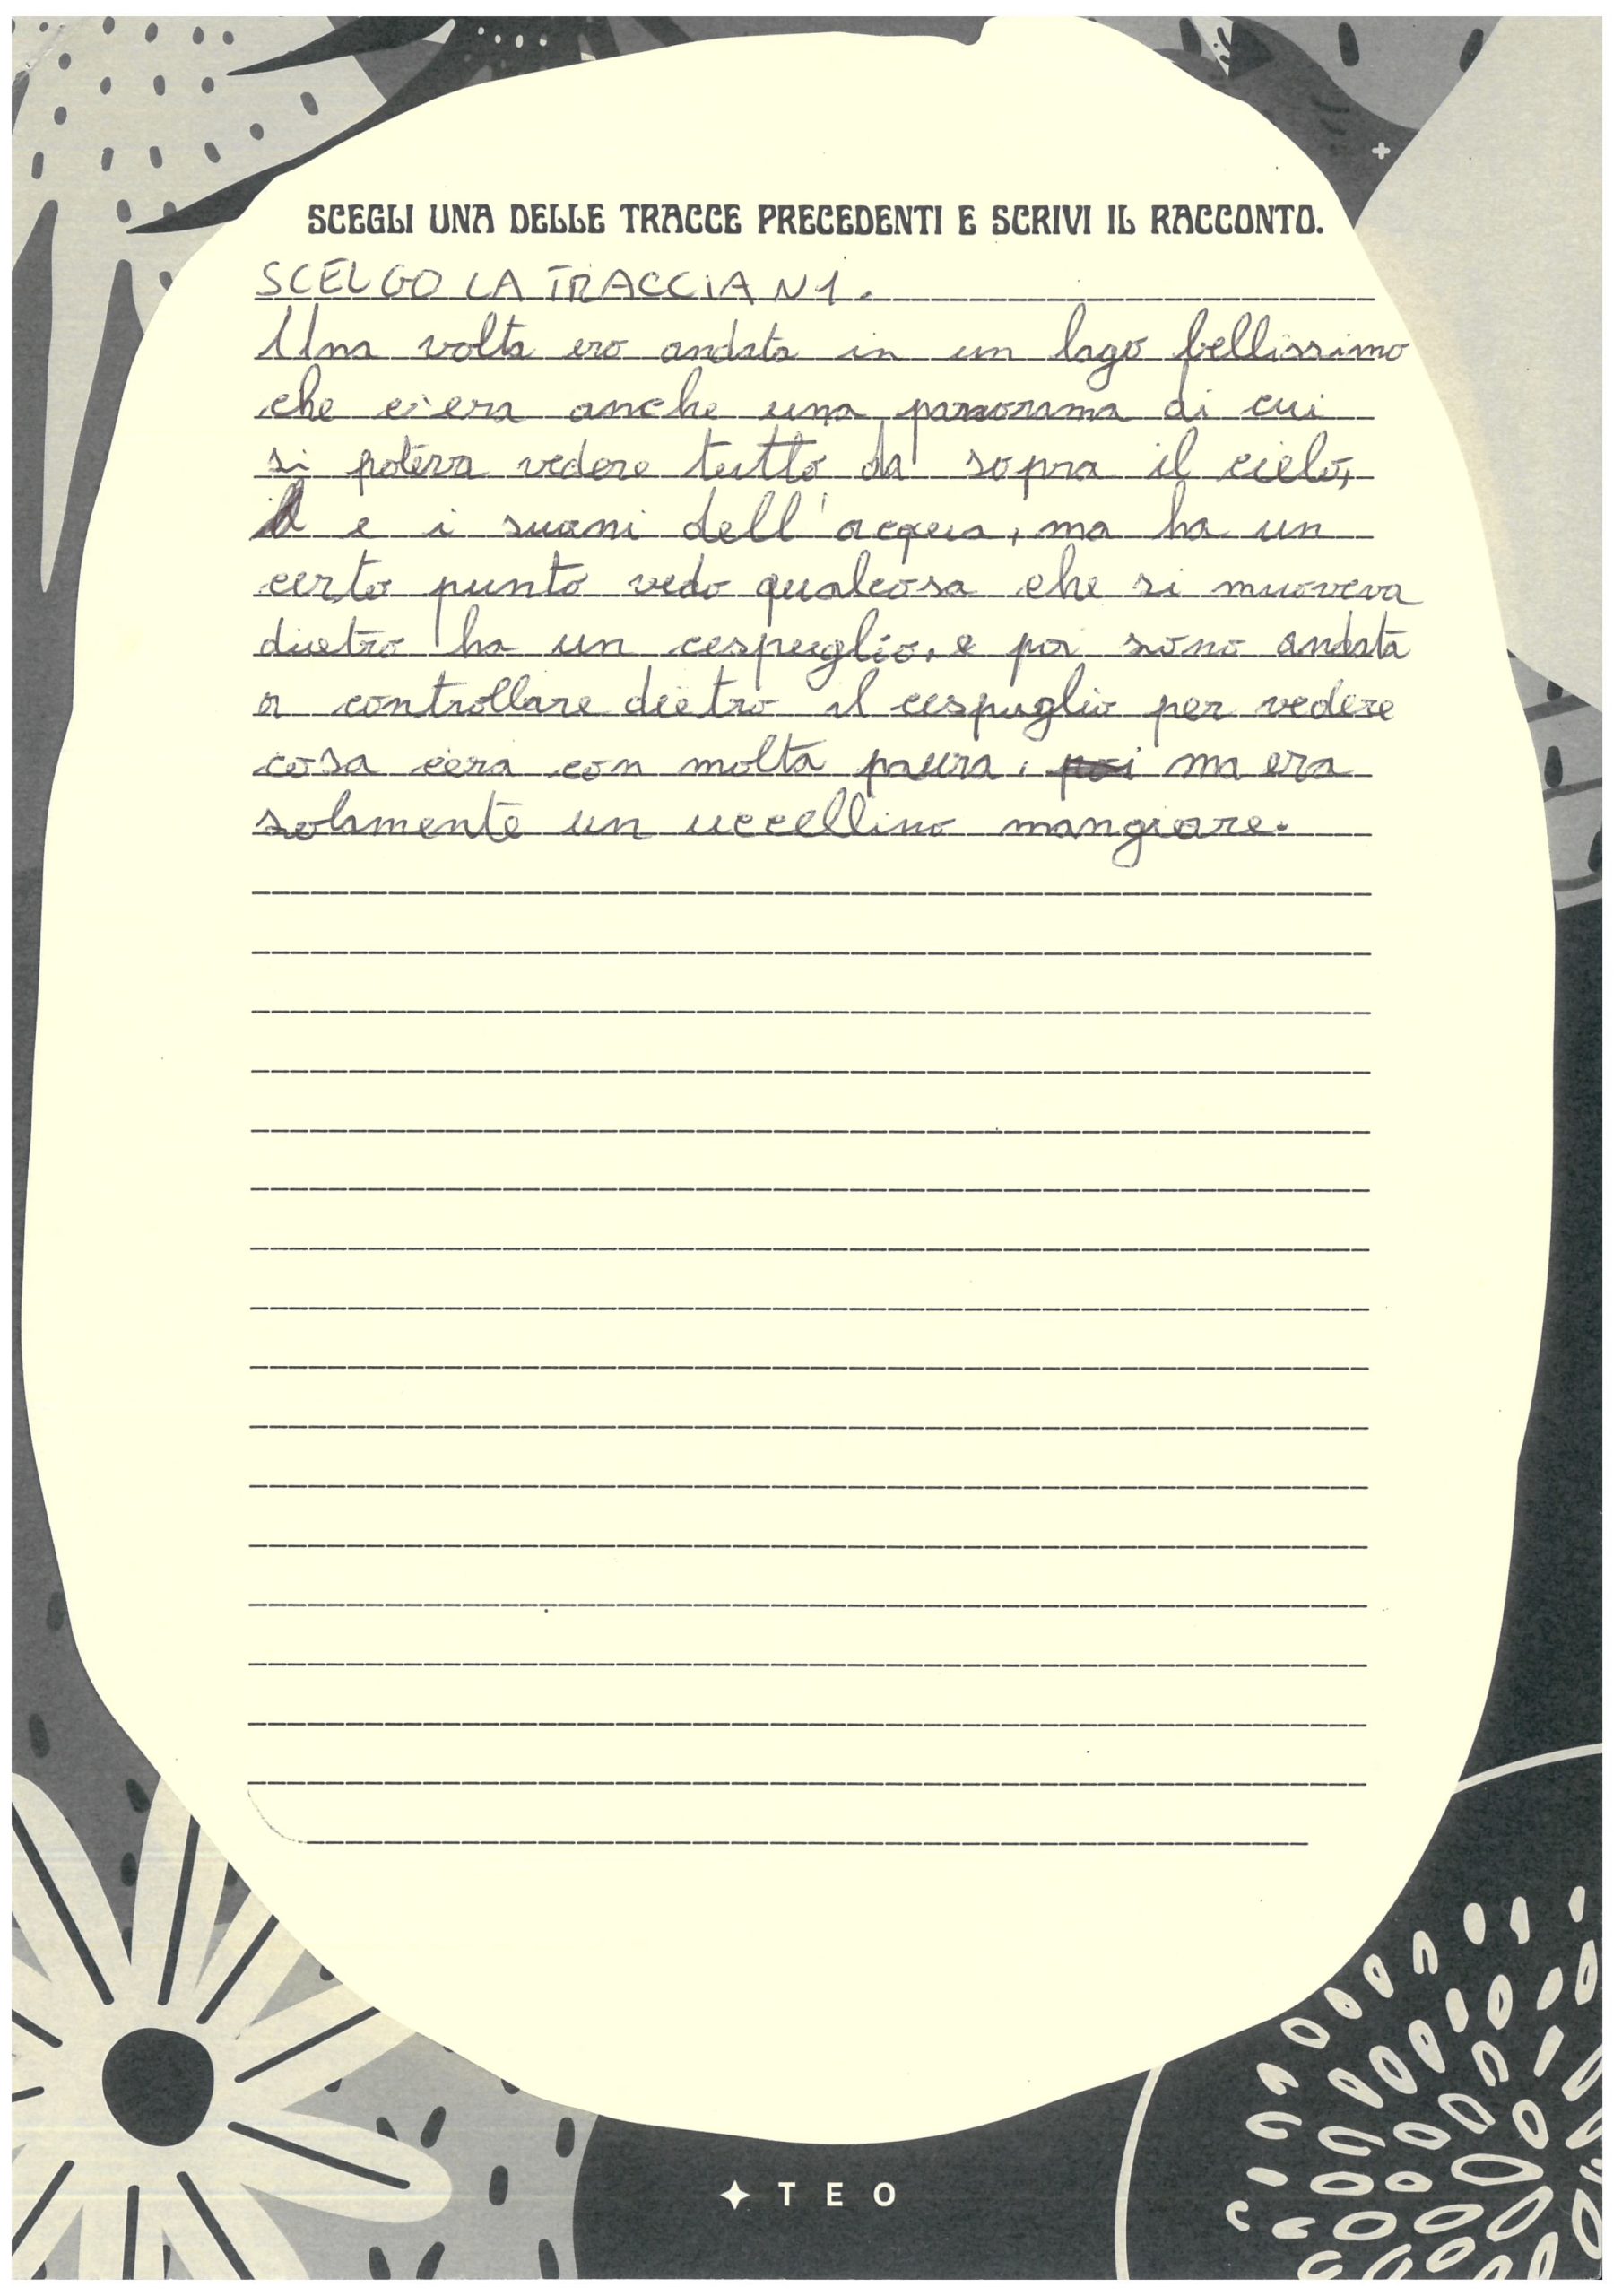 SCEGLI UNA DELLE TRACCE PRECEDENTI E SCRIVI IL RACCONTO.
SCELGO LA TRACCIA N1.
Una volta ero andata in un lago bellissimo
che c'era anche una panorama di cui
si poteva vedere tutto da sopra il cielo,
e i suoni dell'acqua, ma ha un
certo punto vedo qualcosa che si muoveva
dietro ha un cespuglio, e poi sono andata
a controllare dietro il cespuglio per vedere
cosa cera con molta paura, poi ma era
solamente un uccellino mangiare.
TEO